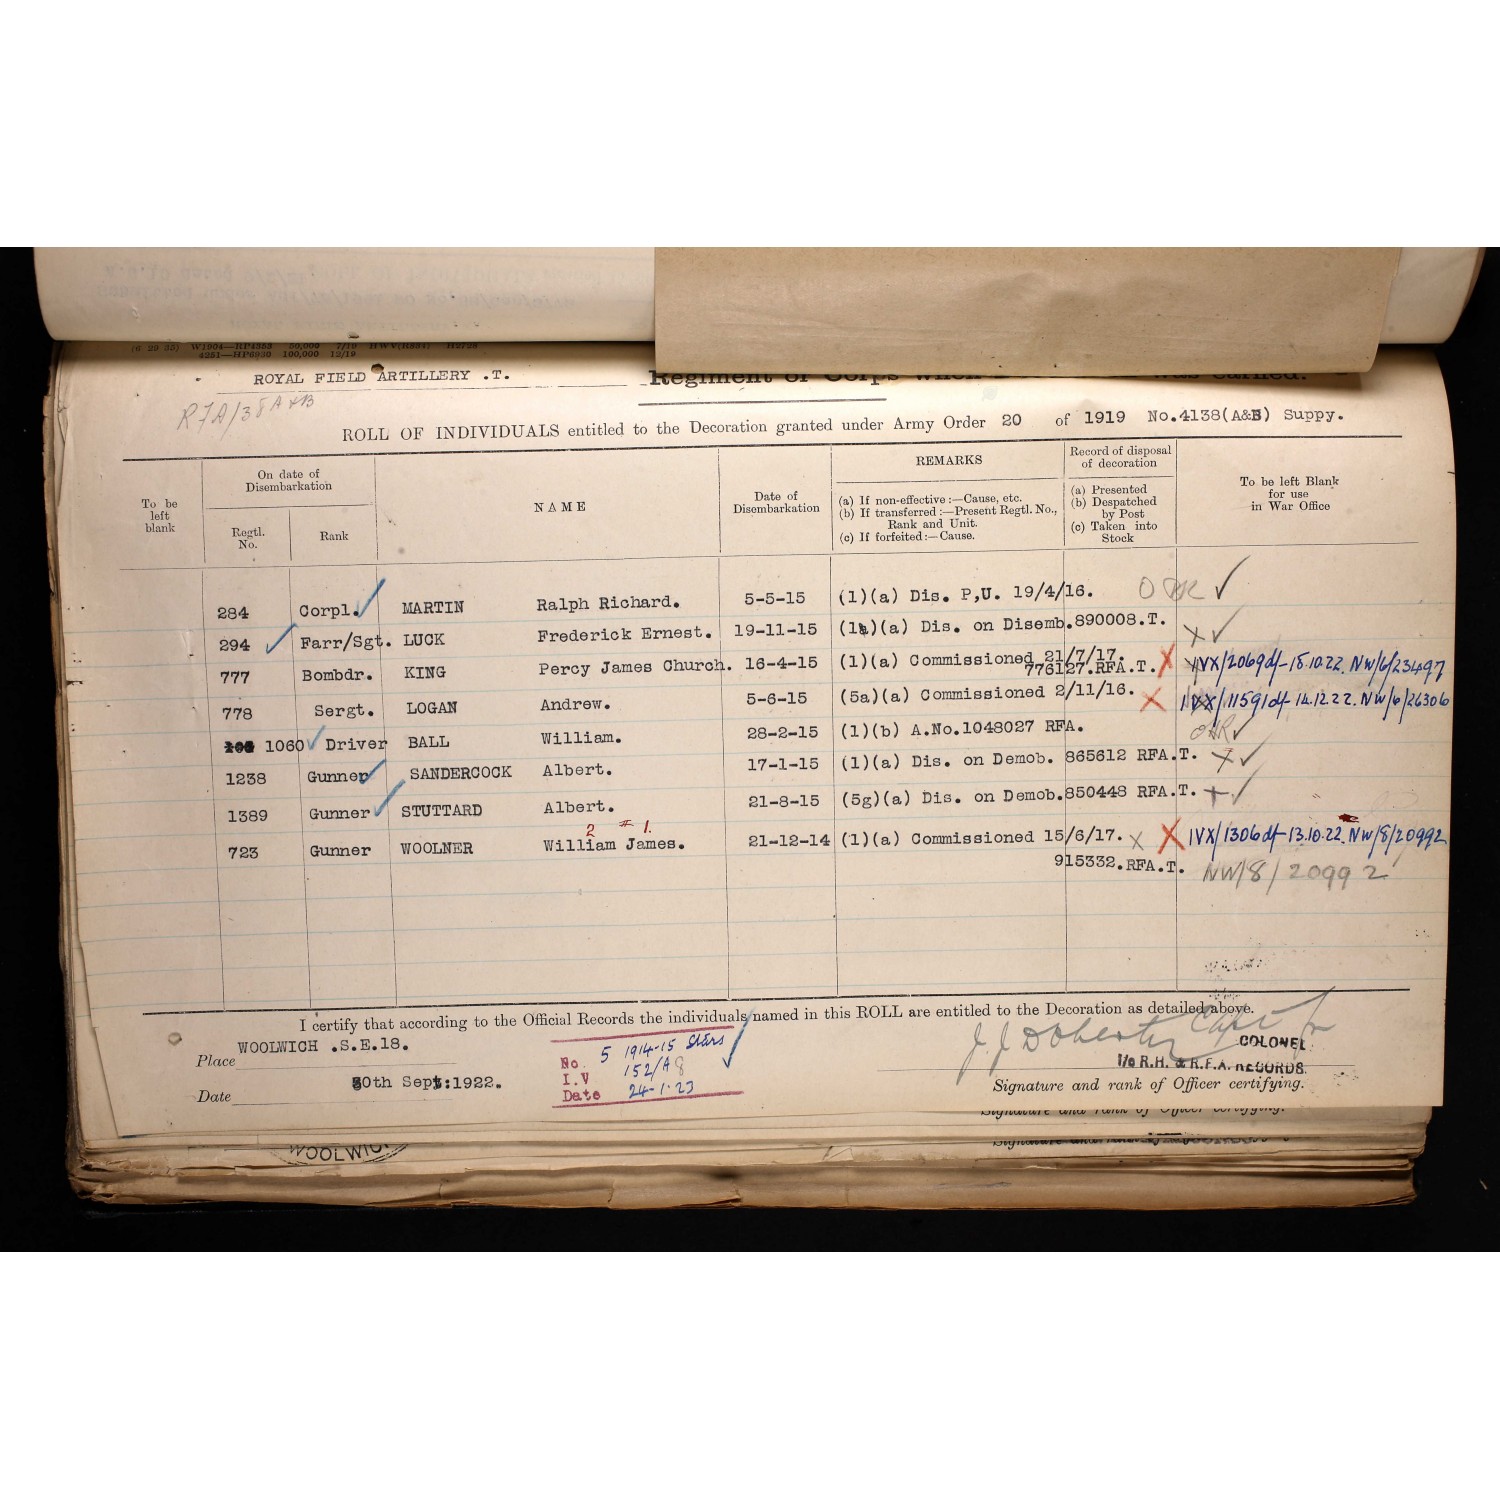 (6 29 35) W1904—RP4353 50,000 7/19 HWV(R834)
4251—HP6930 100,000 12/19
ROYAL FIELD ARTILLERY .T. Regiment or Corps when was earned.
RFA/38 A+B
ROLL OF INDIVIDUALS entitled to the Decoration granted under Army Order 20 of 1919 No.4138(A&B) Suppy.
To be left blank
On date of Disembarkation
Regtl. No.
Rank
NAME
Date of Disembarkation
REMARKS
(a) If non-effective :—Cause, etc.
(b) If transferred :—Present Regtl. No., Rank and Unit.
(c) If forfeited :—Cause.
Record of disposal of decoration
(a) Presented
(b) Despatched by Post
(c) Taken into Stock
To be left Blank for use in War Office
284 Corpl. MARTIN Ralph Richard. 5-5-15 (1)(a) Dis. P,U. 19/4/16.
294 Farr/Sgt. LUCK Frederick Ernest. 19-11-15 (1a)(a) Dis. on Disemb.890008.T. X
777 Bombdr. KING Percy James Church. 16-4-15 (1)(a) Commissioned 21/7/17. X IVX/2069df-18.10.22. NW/6/23497
776127.RFA.T.
778 Sergt. LOGAN Andrew. 5-6-15 (5a)(a) Commissioned 2/11/16. X IVX/11591df-14.12.22. NW/6/26306
1060 Driver BALL William. 28-2-15 (1)(b) A.No.1048027 RFA.
1238 Gunner SANDERCOCK Albert. 17-1-15 (1)(a) Dis. on Demob. 865612 RFA.T. X
1389 Gunner STUTTARD Albert. 21-8-15 (5g)(a) Dis. on Demob.850448 RFA.T. +
2 # 1.
723 Gunner WOOLNER William James. 21-12-14 (1)(a) Commissioned 15/6/17. X X IVX/1306df-13.10.22. NW/8/20992
915332.RFA.T. NW/8/20992
I certify that according to the Official Records the individuals named in this ROLL are entitled to the Decoration as detailed above.
Place WOOLWICH .S.E.18.
J. J. Doherty Capt for
COLONEL
I/c R.H. & R.F.A. RECORDS.
Date 30th Sept:1922.
Signature and rank of Officer certifying.
No. 5 1914-15 Stars
I.V 152/A8
Date 24-1-23
Signature and rank of Officer certifying.
WOOLWIC
Signature and